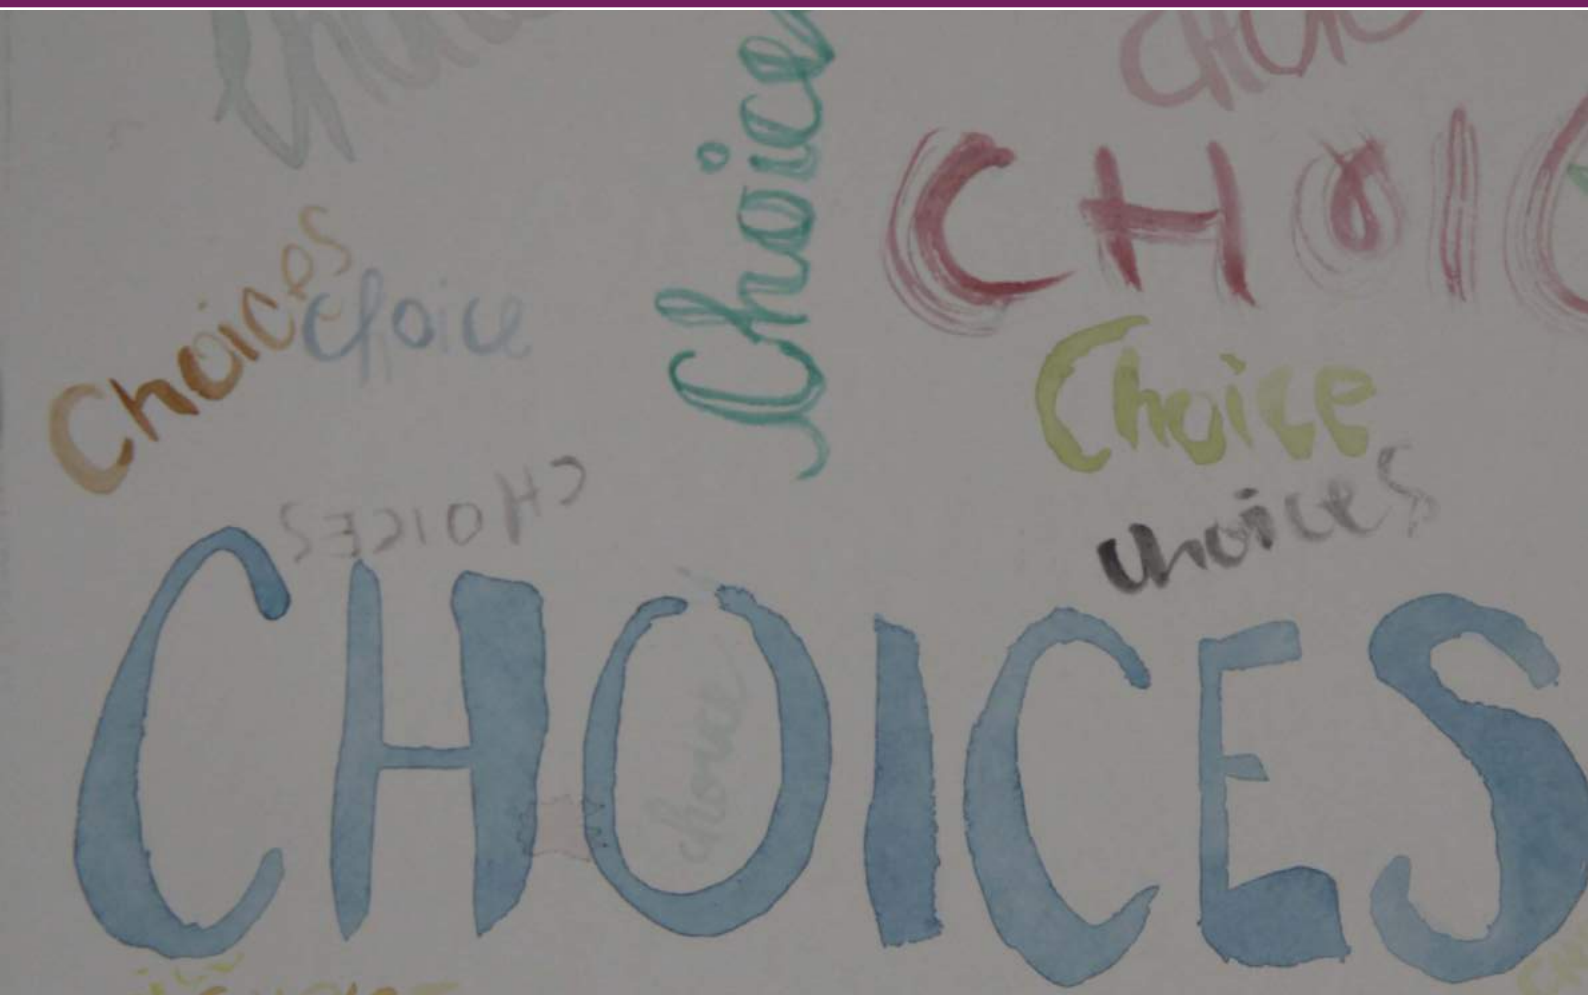 Choice
CHOIC
Choices
choice
Choice
CHOICES
choices
CHOICES
choice